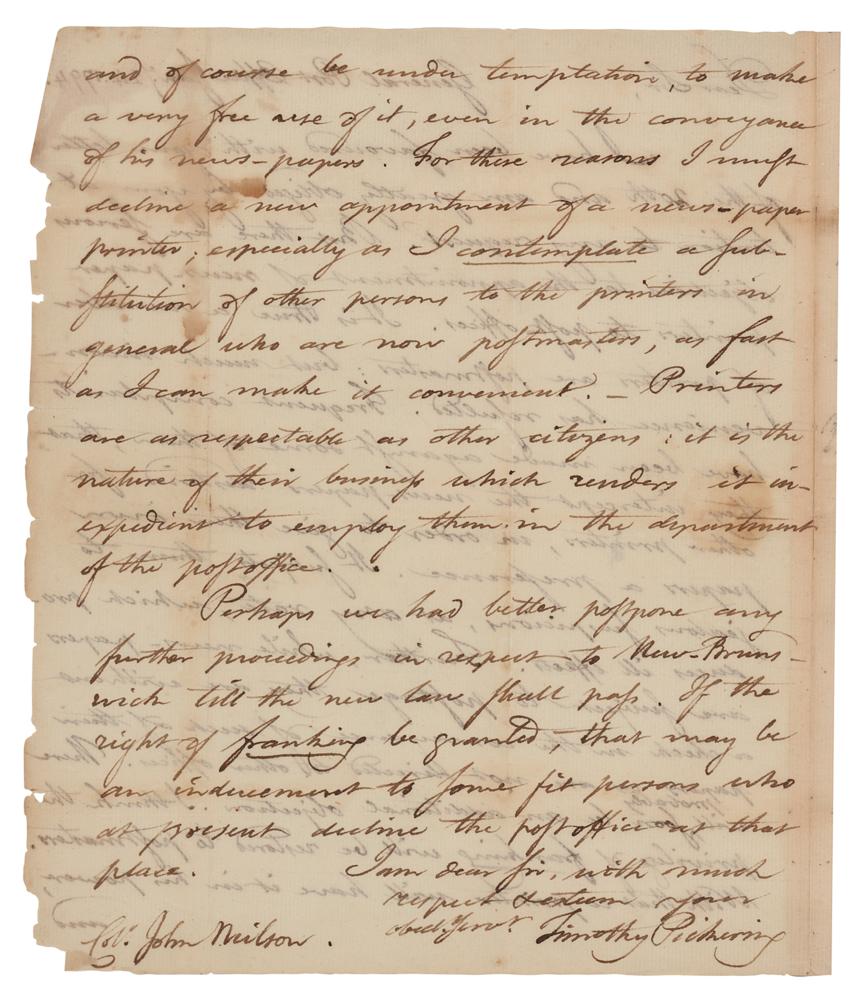 and of course be under temptation, to make
a very free use of it, even in the conveyance
of his news-papers. For these reasons I must
decline a new appointment of a news-paper
printer; especially as I contemplate a sub-
stitution of other persons to the printers in
general who are now postmasters, as fast
as I can make it convenient. – Printers
are as respectable as other citizens: it is the
nature of their business which renders it in-
expedient to employ them in the department
of the post office.
Perhaps we had better postpone any
further proceedings in respect to New-Bruns-
wick till the new law shall pass. If the
right of franking be granted, that may be
an inducement to some fit persons who
at present decline the post office at that
place. I am dear sir, with much
respect & esteem your
obed. servt. Timothy Pickering
Col. John Neilson.